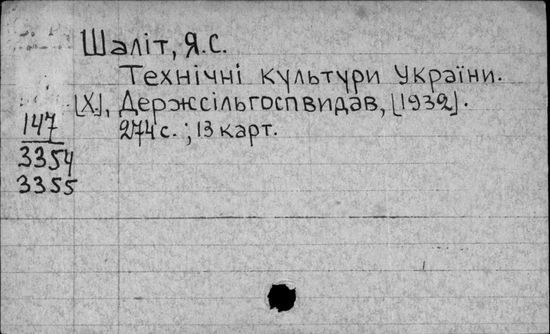 Шаліт, Я.С.
Технічні культури України.
[Х], Держсільгоспвидав, [1932].
274 с. ; 13 карт.
147
3354
3355